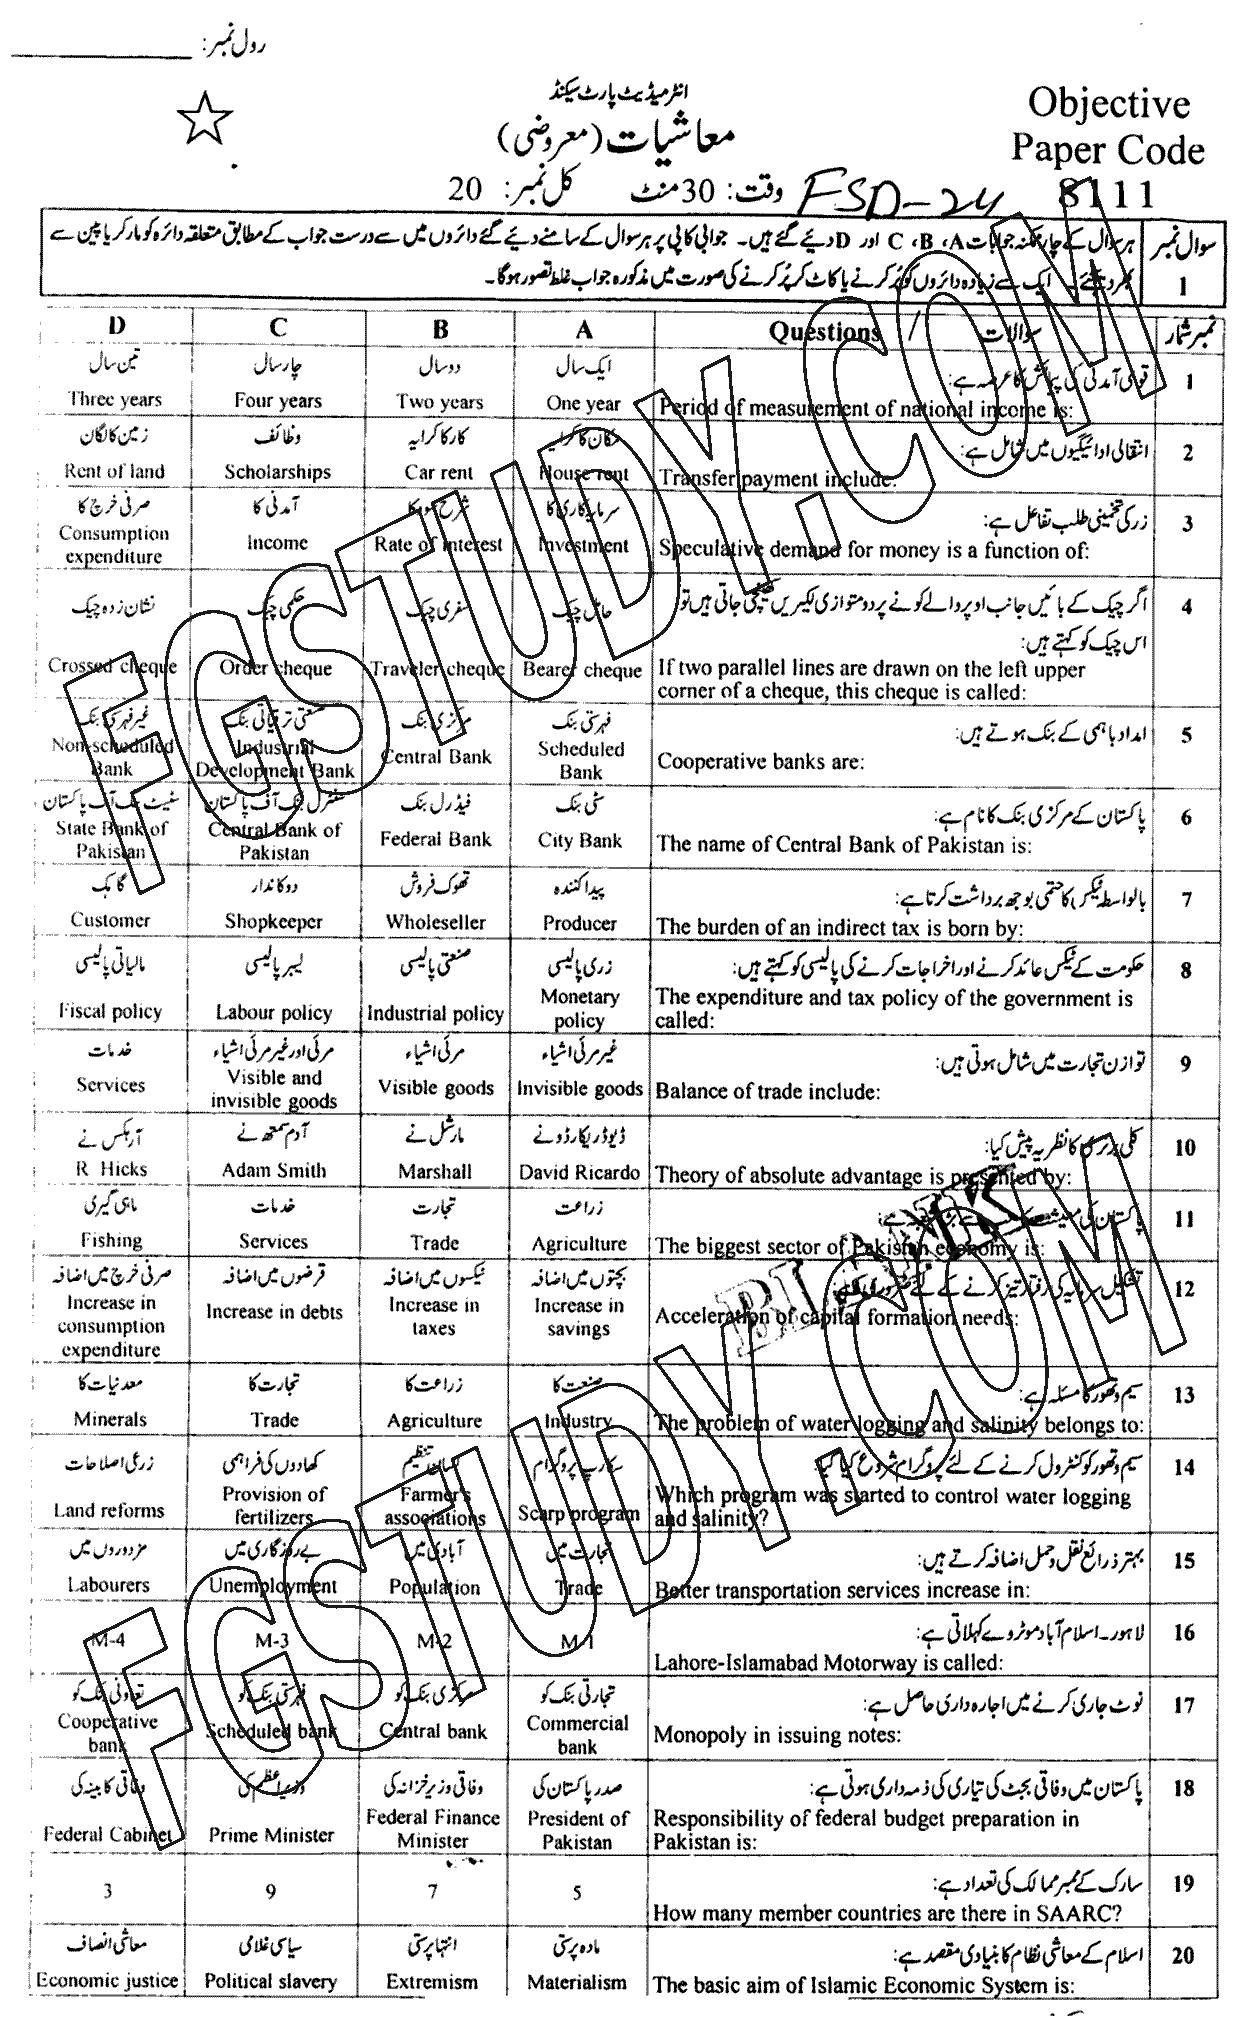 رول نمبر: ____________
انٹرمیڈیٹ پارٹ سیکنڈ
Objective
معاشیات (معروضی)
Paper Code
وقت: 30 منٹ کل نمبر: 20
FSD-24
8111
سوال نمبر 1
ہر سوال کے چار ممکنہ جوابات A، B، C اور D دیئے گئے ہیں۔ جوابی کاپی پر ہر سوال کے سامنے دیئے گئے دائروں میں سے درست جواب کے مطابق متعلقہ دائرہ کو مارکر یا پین سے
بھر دیجئے۔ ایک سے زیادہ دائروں کو پُر کرنے یا کاٹ کر پُر کرنے کی صورت میں مذکورہ جواب غلط تصور ہوگا۔
نمبر شمار سوالات / Questions A B C D
1 قومی آمدنی کی پیمائش کا عرصہ ہے: ایک سال دو سال چار سال تین سال
Period of measurement of national income is: One year Two years Four years Three years
2 انتقالی ادائیگیوں میں شامل ہے: مکان کا کرایہ کار کا کرایہ وظائف زمین کا لگان
Transfer payment include: House rent Car rent Scholarships Rent of land
3 زر کی تخمینی طلب تفاعل ہے: سرمایہ کاری کا شرح سود کا آمدنی کا صرفی خرچ کا
Speculative demand for money is a function of: Investment Rate of interest Income Consumption expenditure
4 اگر چیک کے بائیں جانب اوپر والے کونے پر دو متوازی لکیریں کھینچی جاتی ہیں تو
اس چیک کو کہتے ہیں: حامل چیک سفری چیک حکمی چیک نشان زدہ چیک
If two parallel lines are drawn on the left upper
corner of a cheque, this cheque is called: Bearer cheque Traveler cheque Order cheque Crossed cheque
5 امداد باہمی کے بنک ہوتے ہیں: فہرستی بنک مرکزی بنک صنعتی ترقیاتی بنک غیر فہرستی بنک
Cooperative banks are: Scheduled Bank Central Bank Industrial Development Bank Non-scheduled Bank
6 پاکستان کے مرکزی بنک کا نام ہے: سٹی بنک فیڈرل بنک سنٹرل بنک آف پاکستان سٹیٹ بنک آف پاکستان
The name of Central Bank of Pakistan is: City Bank Federal Bank Central Bank of Pakistan State Bank of Pakistan
7 بالواسطہ ٹیکس کا حتمی بوجھ برداشت کرتا ہے: پیدا کنندہ تھوک فروش دوکاندار گاہک
The burden of an indirect tax is born by: Producer Wholeseller Shopkeeper Customer
8 حکومت کے ٹیکس عائد کرنے اور اخراجات کرنے کی پالیسی کو کہتے ہیں: زری پالیسی صنعتی پالیسی لیبر پالیسی مالیاتی پالیسی
The expenditure and tax policy of the government is
called: Monetary policy Industrial policy Labour policy Fiscal policy
9 توازن تجارت میں شامل ہوتی ہیں: غیر مرئی اشیاء مرئی اشیاء مرئی اور غیر مرئی اشیاء خدمات
Balance of trade include: Invisible goods Visible goods Visible and invisible goods Services
10 کلی برتری کا نظریہ پیش کیا: ڈیوڈ ریکارڈو نے مارشل نے آدم سمتھ نے آر ہکس نے
Theory of absolute advantage is presented by: David Ricardo Marshall Adam Smith R. Hicks
11 پاکستان کی زراعت تجارت خدمات ماہی گیری
The biggest sector of Pakistan economy is: Agriculture Trade Services Fishing
12 تشکیل سرمایہ کی رفتار تیز کرنے کے لئے ضروری ہے: بچتوں میں اضافہ ٹیکسوں میں اضافہ قرضوں میں اضافہ صرفی خرچ میں اضافہ
Acceleration of capital formation needs: Increase in savings Increase in taxes Increase in debts Increase in consumption expenditure
13 سیم و تھور کا مسئلہ ہے: صنعت کا زراعت کا تجارت کا معدنیات کا
The problem of water logging and salinity belongs to: Industry Agriculture Trade Minerals
14 سیم و تھور کو کنٹرول کرنے کے لئے پروگرام شروع کیا گیا: سکارپ پروگرام کسان تنظیم کھادوں کی فراہمی زرعی اصلاحات
Which program was started to control water logging
and salinity? Scarp program Farmer's associations Provision of fertilizers Land reforms
15 بہتر ذرائع نقل و حمل اضافہ کرتے ہیں: تجارت میں آبادی میں بے روزگاری میں مزدوروں میں
Better transportation services increase in: Trade Population Unemployment Labourers
16 لاہور۔اسلام آباد موٹروے کہلاتی ہے: M-1 M-2 M-3 M-4
Lahore-Islamabad Motorway is called:
17 نوٹ جاری کرنے میں اجارہ داری حاصل ہے: تجارتی بنک کو مرکزی بنک کو فہرستی بنک کو تعاونی بنک کو
Monopoly in issuing notes: Commercial bank Central bank Scheduled bank Cooperative bank
18 پاکستان میں وفاقی بجٹ کی تیاری کی ذمہ داری ہوتی ہے: صدر پاکستان کی وفاقی وزیر خزانہ کی وزیر اعظم کی وفاقی کابینہ کی
Responsibility of federal budget preparation in
Pakistan is: President of Pakistan Federal Finance Minister Prime Minister Federal Cabinet
19 سارک کے ممبر ممالک کی تعداد ہے: 5 7 9 3
How many member countries are there in SAARC?
20 اسلام کے معاشی نظام کا بنیادی مقصد ہے: مادہ پرستی انتہا پرستی سیاسی غلامی معاشی انصاف
The basic aim of Islamic Economic System is: Materialism Extremism Political slavery Economic justice
FGSTUDY.COM
FGSTUDY.COM